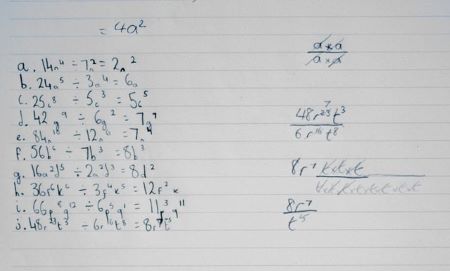 = 4a²
a. 14a⁴ ÷ 7a² = 2a²
b. 24a⁵ ÷ 3a⁴ = 6a
c. 25c⁸ ÷ 5c³ = 5c⁵
d. 42g⁹ ÷ 6g² = 7g⁷
e. 84n¹⁸ ÷ 12n⁹ = 7n⁹
f. 56b⁶ ÷ 7b³ = 8b³
g. 16a²d⁵ ÷ 2a²d³ = 8d²
h. 36r⁶k⁶ ÷ 3r⁴k⁵ = 12r²k
i. 66p⁸g¹² ÷ 6p⁵g¹ = 11p³g¹¹
j. 48r²³t³ ÷ 6r¹⁶t⁸ = 8r⁷t
a × a
a × a
48r²³t³
6r¹⁶t⁸
8r⁷ t×t×t
t×t×t×t×t×t×t×t
8r⁷
t⁵